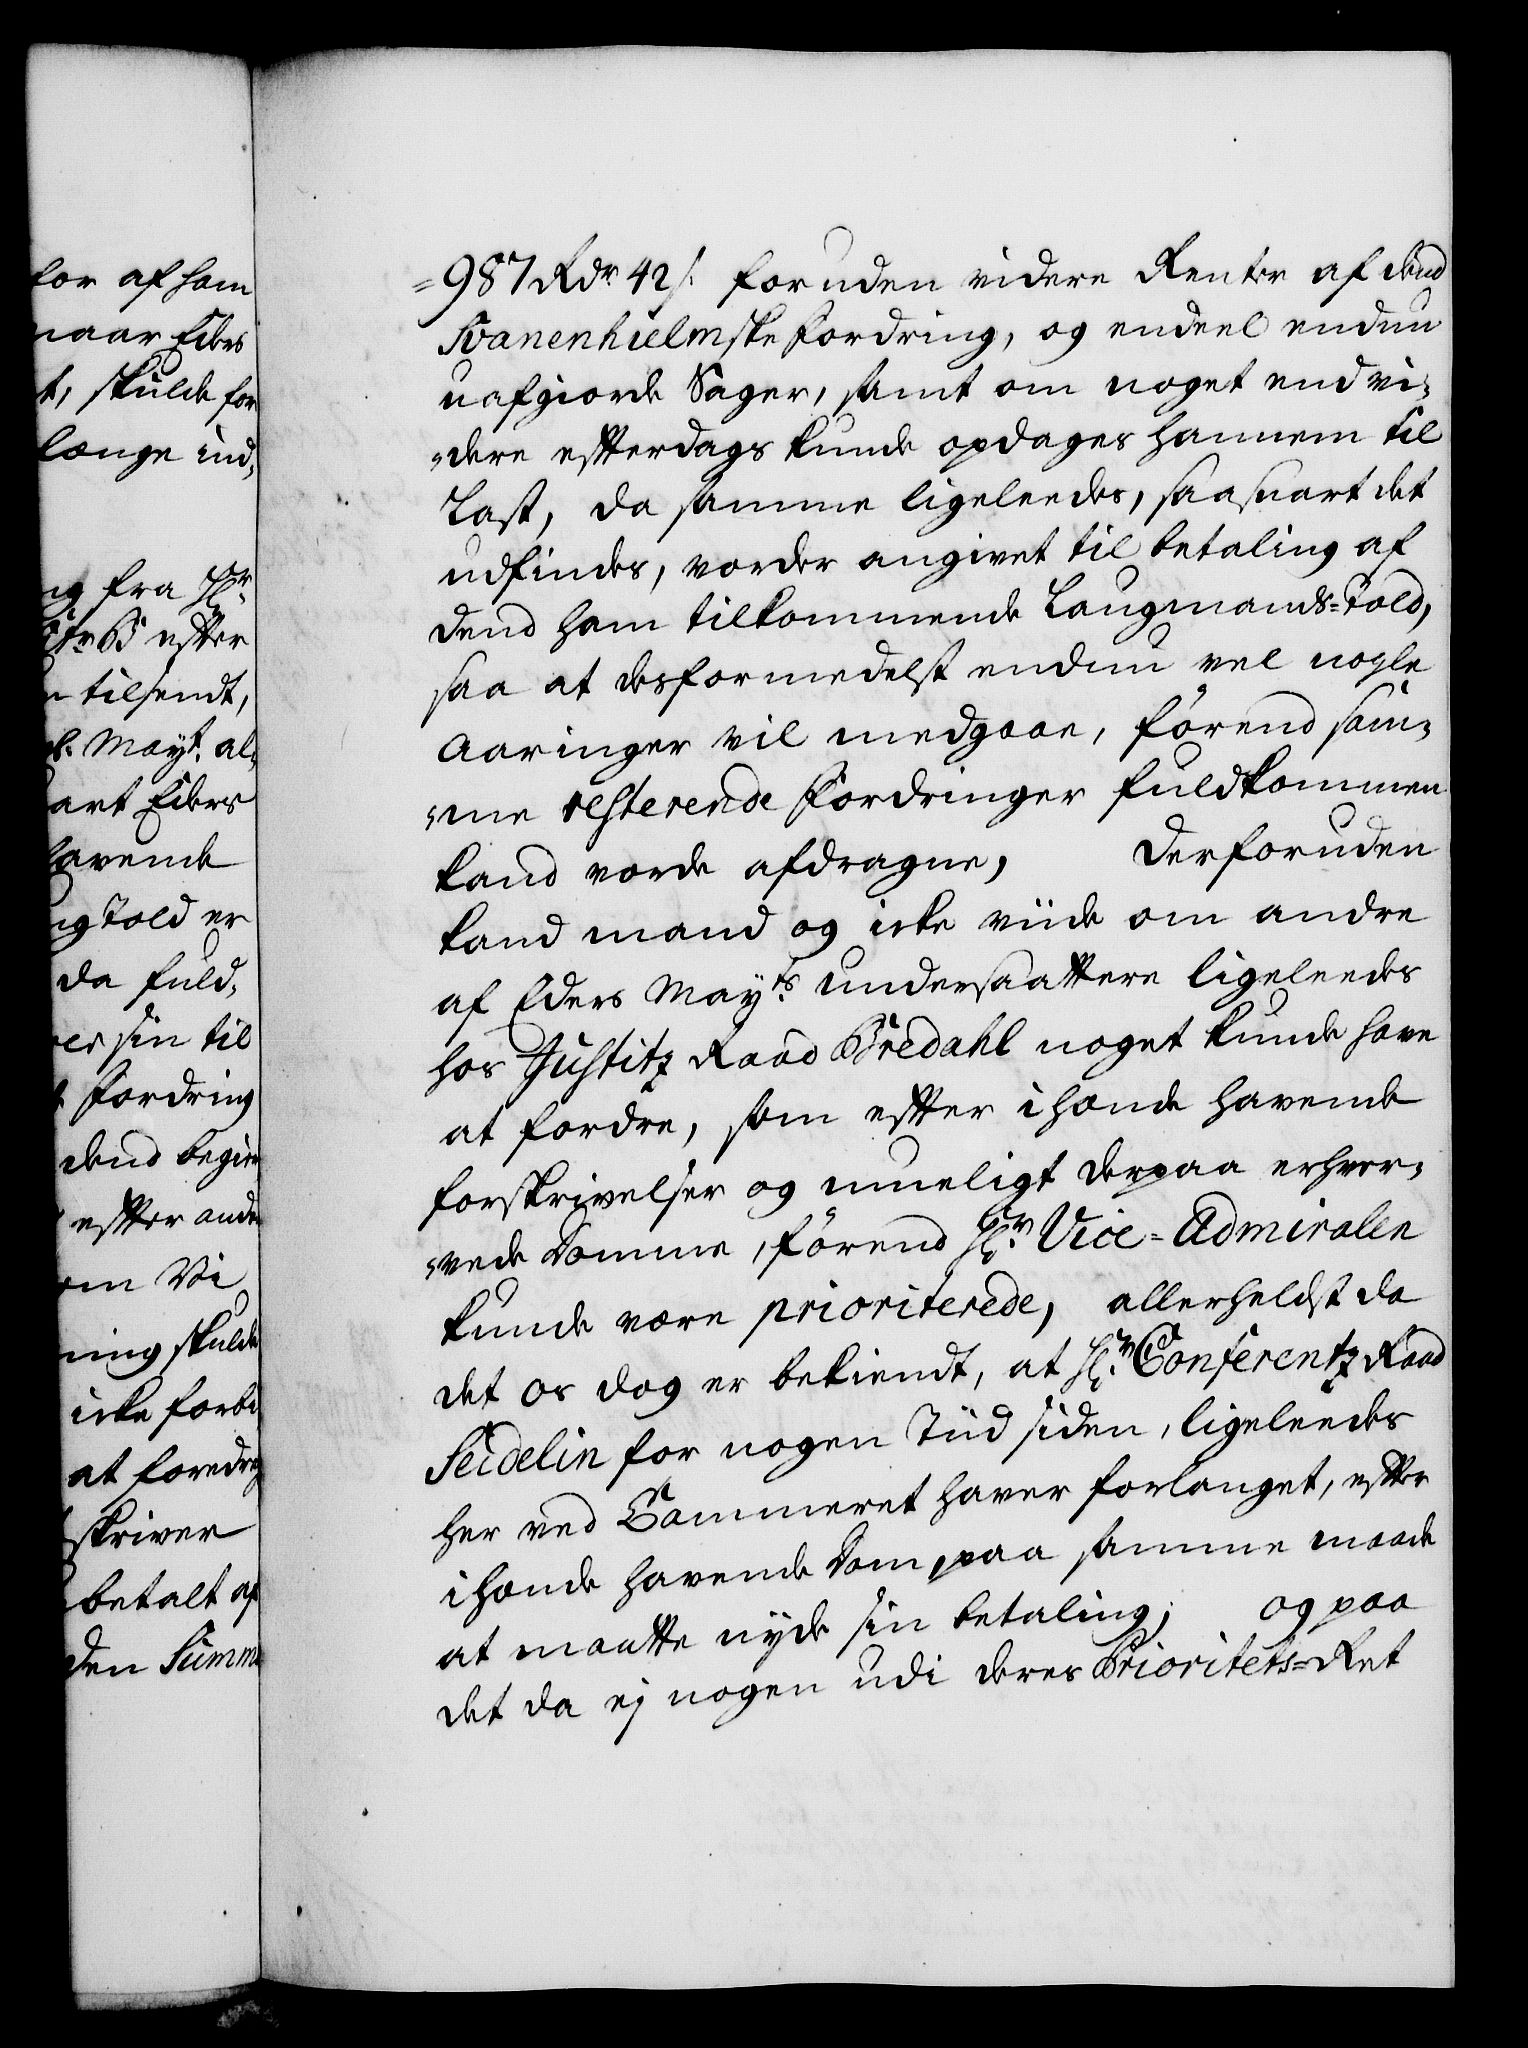 for af ham
naar Eders
t, skulde for
længe ind,
ng fra Hr.
efter
n tilsendt,
l. Mayt. al,
art Eders
havende
ngTold er
da fuld,
er sin til
Fordring
dend begier
efter andre
om Vi
ning skulde
icke forbi
at foredrag
skriver
betalt af
den Summa
=987 Rdr. 42 s. foruden videre Renter af dend
Svanenhielmske Fordring, og endeel endnu
uafgiorde Sager, samt om noget end vi-
"dere efterdags kunde opdages hannem til
Last, da samme ligeleedes, saasnart det
udfindes, vorder angivet til betaling af
dend ham tilkommende Laugmands-Told,
saa at desformedelst endnu vel nogle
Aaringer vil medgaae, førend sam-
"me resterende Fordringer fuldkommen
kand vorde afdragne, Derforuden
kand mand og icke viide om andre
af Eders Mayts. undersaattere ligeleedes
hos Justitz Raad Bredahl noget kunde have
at fordre, som efter i hænde havende
forskrivelser og mueligt derpaa erhver-
"vede Domme, førend Hr. Vice-Admiralen
kunde være prioriterede, allerheldst da
det os dog er bekiendt, at Hr. Conferentz Raad
Seidelin for nogen Tiid siden, ligeleedes
her ved Cammeret haver forlanget, efter
i hænde havende Dom, paa samme maade
at maatte nyde sin betaling; og paa
det da ej nogen udi deres Prioritets-Ret